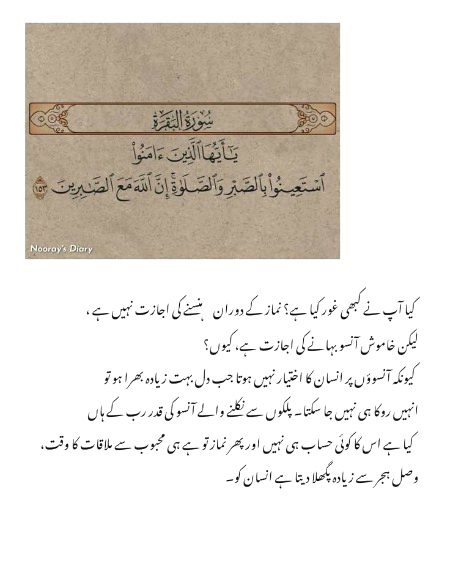 سُورَةُ البَقَرَةِ
يَـٰٓأَيُّهَا ٱلَّذِينَ ءَامَنُوا۟
ٱسْتَعِينُوا۟ بِٱلصَّبْرِ وَٱلصَّلَوٰةِۚ إِنَّ ٱللَّهَ مَعَ ٱلصَّـٰبِرِينَ ١٥٣
Nooray's Diary
کیا آپ نے کبھی غور کیا ہے؟ نماز کے دوران ہنسنے کی اجازت نہیں ہے،
لیکن خاموش آنسو بہانے کی اجازت ہے، کیوں؟
کیونکہ آنسوؤں پر انسان کا اختیار نہیں ہوتا جب دل بہت زیادہ بھرا ہو تو
انہیں روکا ہی نہیں جا سکتا۔ پلکوں سے نکلنے والے آنسو کی قدر رب کے ہاں
کیا ہے اس کا کوئی حساب ہی نہیں اور پھر نماز تو ہے ہی محبوب سے ملاقات کا وقت،
وصل ہجر سے زیادہ پگھلا دیتا ہے انسان کو۔